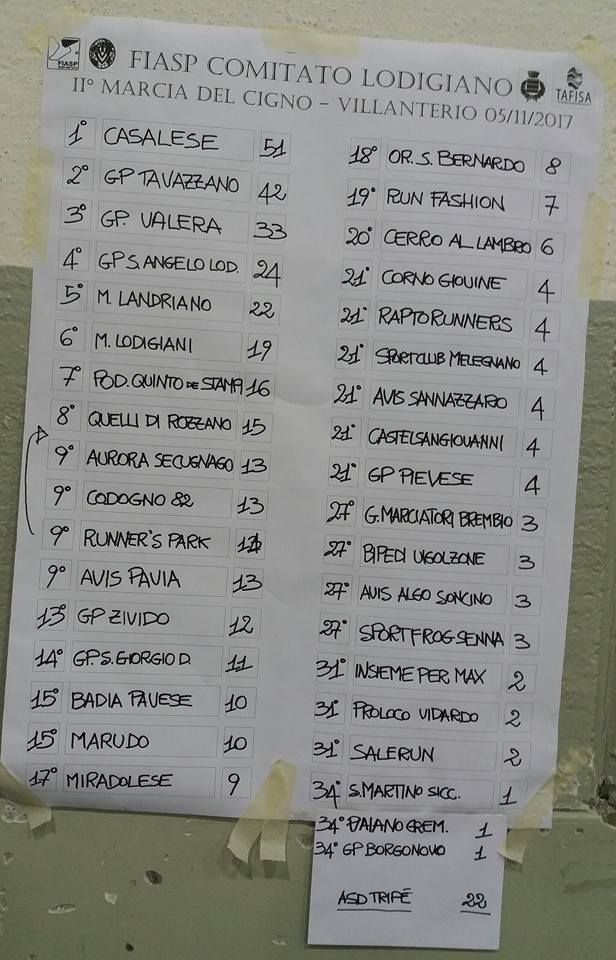 FIASP
TAFISA
FIASP COMITATO LODIGIANO
IIº MARCIA DEL CIGNO – VILLANTERIO 05/11/2017
1º CASALESE 51
2º GP TAVAZZANO 42
3º GP. VALERA 33
4º GP S. ANGELO LOD. 24
5º M. LANDRIANO 22
6º M. LODIGIANI 19
7º POD. QUINTO DE STAMPI 16
8º QUELLI DI ROZZANO 15
9º AURORA SECUGNAGO 13
9º CODOGNO 82 13
9º RUNNER'S PARK
9º AVIS PAVIA 13
13º GP ZIVIDO 12
14º GP. S. GIORGIO D. 11
15º BADIA PAVESE 10
15º MARUDO 10
17º MIRADOLESE 9
18º OR. S. BERNARDO 8
19º RUN FASHION 7
20º CERRO AL LAMBRO 6
21º CORNO GIOVINE 4
21º RAPTORUNNERS 4
21º SPORTCLUB MELEGNANO 4
21º AVIS SANNAZZARO 4
21º CASTELSANGIOVANNI 4
21º GP PIEVESE 4
27º G. MARCIATORI BREMBIO 3
27º BIPEDI VIGOLZONE 3
27º AVIS ALGO SONCINO 3
27º SPORTFROG SENNA 3
31º INSIEME PER MAX 2
31º PROLOCO VIDARDO 2
31º SALERUN 2
34º S. MARTINO SICC. 1
34º PAIANO CREM. 1
34º GP BORGONOVO 1
ASD TRIPÉ 22